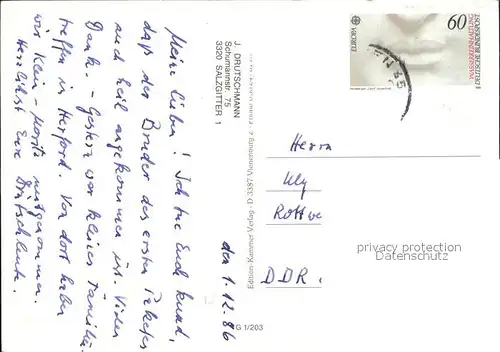 J. DRUTSCHMANN
Schumannstr. 75
3320 SALZGITTER 1
den 1.12.86
Meine Lieben! Ich tue Euch kund,
daß der Bruder des ersten Paketes
auch heil angekommen ist. Vielen
Dank. - Gestern war kleines Familien-
treffen in Herford. Von dort haben
wir Klein-Moritz mitgenommen.
Herzlichst Eure Dütschleute.
Edition Kammer Verlag · D-3387 Vienenburg 2
G 1/203
60
EUROPA
DEUTSCHE BUNDESPOST
Herrn
Uly
Rottwe
DDR.
privacy protection
Datenschutz